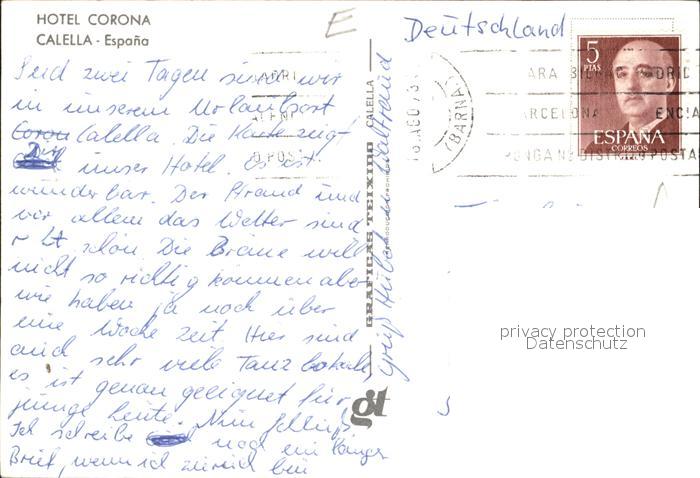 HOTEL CORONA
CALELLA - España
Seid zwei Tagen sind wir
in unserem Urlaubsort
Calella. Die Karte zeigt
unser Hotel. Es ist
wunderbar. Der Strand und
vor allem das Wetter sind
schön. Die Bräune will
nicht so richtig kommen aber
wir haben ja noch über
eine Woche Zeit. Hier sind
auch sehr viele Tanzlokale,
es ist genau geeignet für
junge Leute. Nun
Ich schreibe noch ein langer
Brief, wenn ich zurück bin
Gruß
GRAFICAS TEIXIDO
CALELLA
Deutschland
E
5
PTAS
ESPAÑA
CORREOS
(BARNA)
AGO 73
ARCELONA
MADRID
DISTRITO POSTA
gt
privacy protection
Datenschutz